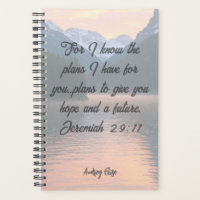 For I know the
plans I have for
you..plans to give you
hope and a future.
Jeremiah 29:11
Audrey